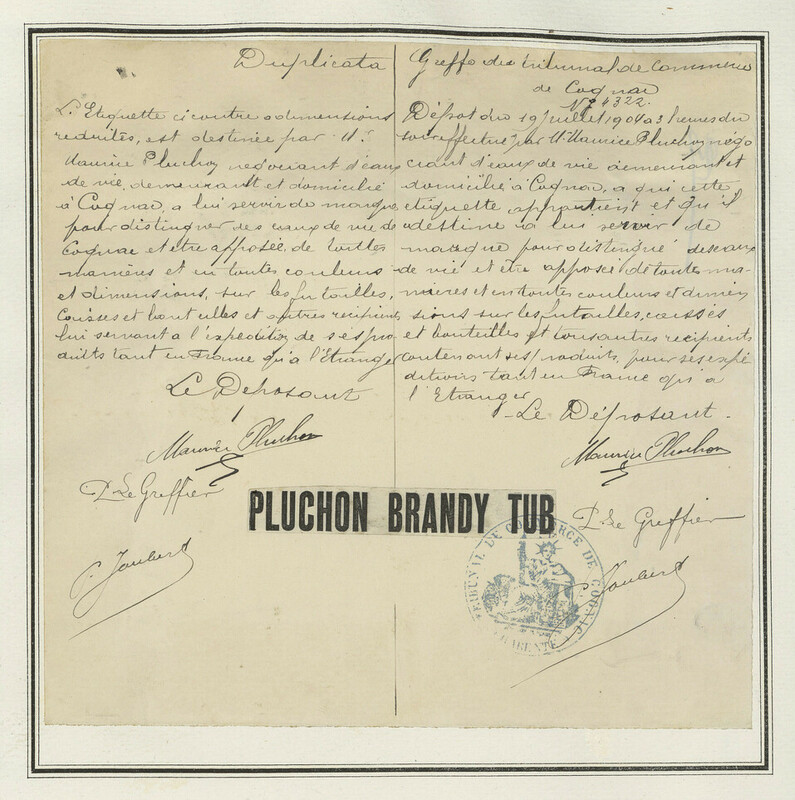 Duplicata
L'Etiquette ci contre a dimensions
reduites, est destinée par Mr
Maurice Pluchon négociant d'eaux
de vie, demeurant et domicilié
à Cognac, a lui servir de marque
pour distinguer des eaux de vie de
Cognac et etre apposée de toutes
manières et en toutes couleurs
et dimensions, sur les futailles,
caisses et bouteilles et autres recipients
lui servant a l'expédition de ses pro
duits tant en France qu'a l'Etranger
Le Déposant
Maurice Pluchon
Pr Le Greffier
Joubert
Greffe du tribunal de Commerce
de Cognac
No 4322.
Dépot du 19 Juillet 1904 a 3 heures du
soir effectué par M. Maurice Pluchon négo
ciant d'eaux de vie demeurant et
domicilié à Cognac, a qui cette
etiquette appartient et qu'il
destine a lui servir de
marque pour distingué des eaux
de vie et etre apposée de toutes ma-
nieres et en toutes couleurs et dimen
sions sur les futailles, caisses
et bouteilles et tous autres recipients
contenant ses produits, pour ses expé
ditions tant en France qu'a
l'Etranger
Le Déposant.
Maurice Pluchon
Pr Le Greffier
Joubert
PLUCHON BRANDY TUB
TRIBUNAL DE COMMERCE DE COGNAC
CHARENTE